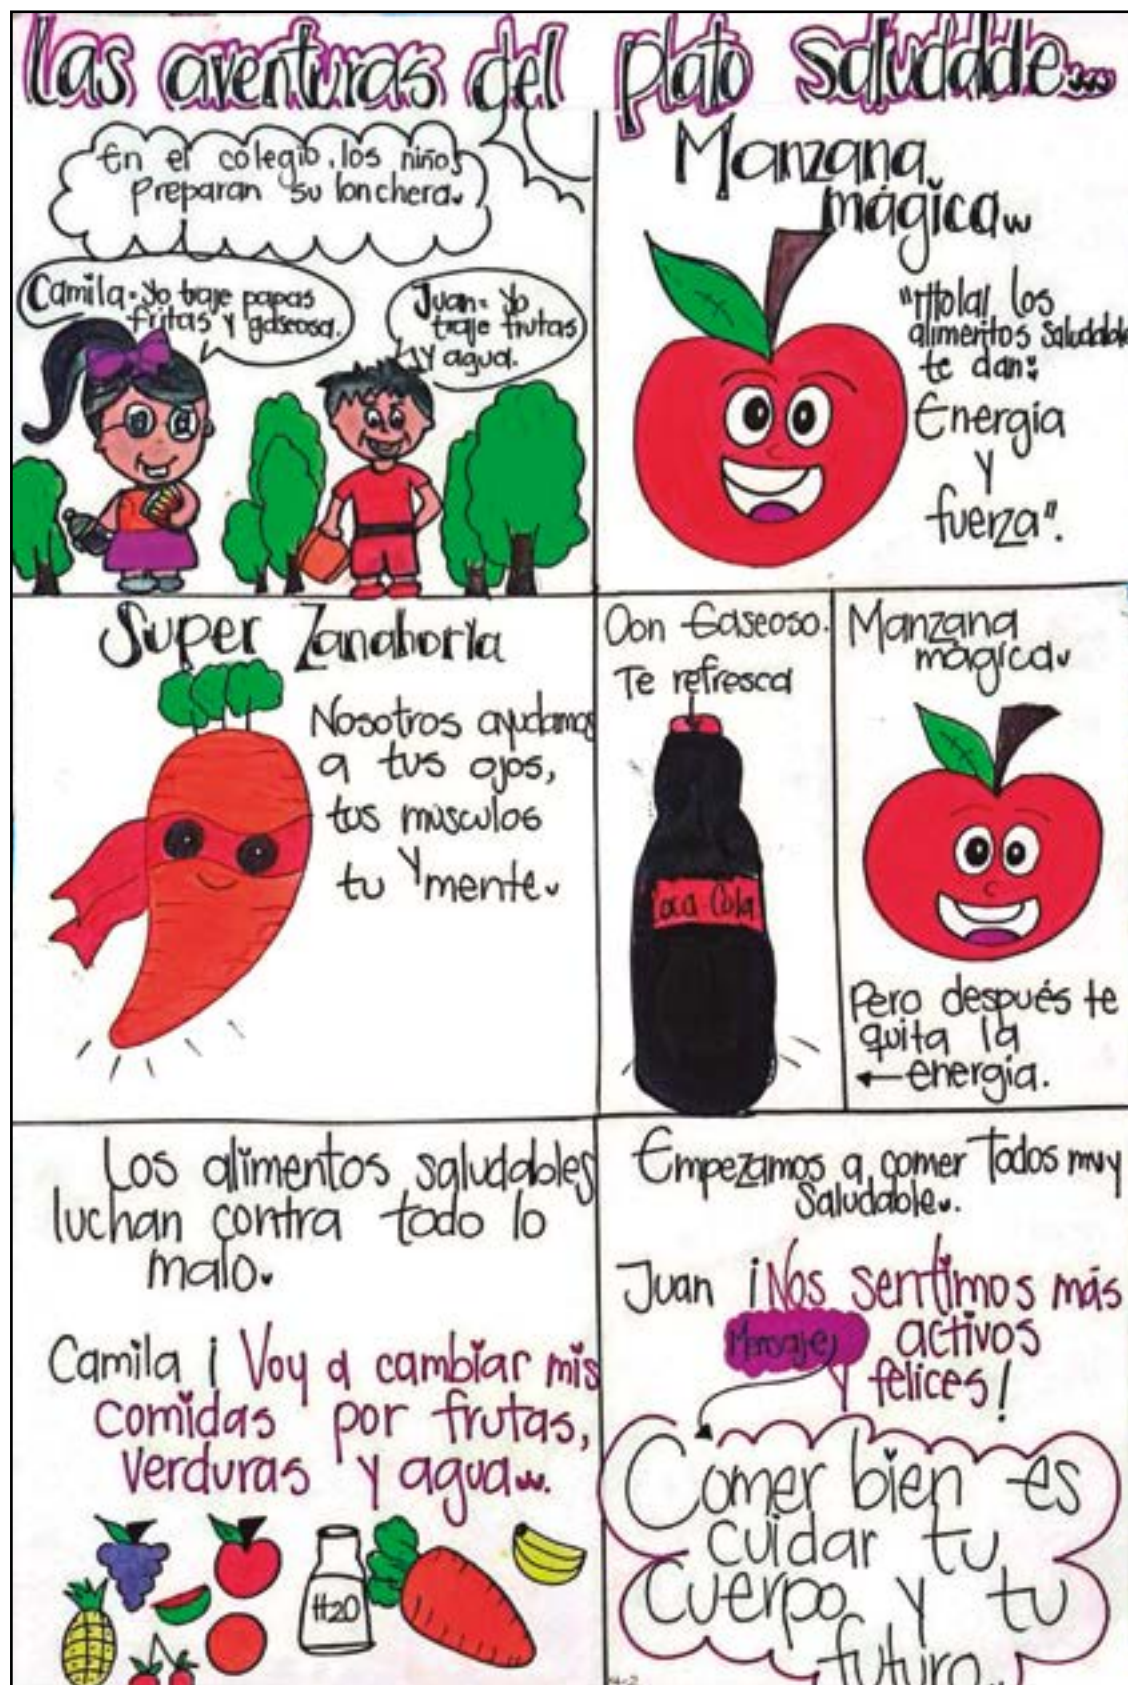 Las aventuras del plato saludable...
En el colegio, los niños
preparan su lonchera.
Camila= Yo traje papas
fritas y gaseosa.
Juan= Yo
traje frutas
y agua.
Manzana
mágica...
"¡Hola! los
alimentos saludable
te dan:
Energía
y
fuerza".
Super Zanahoria
Nosotros ayudamos
a tus ojos,
tus músculos
y
tu mente.
Don Gaseoso.
Te refresca
Coca Cola
Manzana
mágica.
Pero después te
quita la
energía.
Los alimentos saludables
luchan contra todo lo
malo.
Camila ¡Voy a cambiar mis
comidas por frutas,
verduras y agua...
H2O
Empezamos a comer Todos muy
saludable..
Juan ¡Nos sentimos más
activos
y felices!
Mensaje
Comer bien es
cuidar tu
cuerpo y tu
futuro..